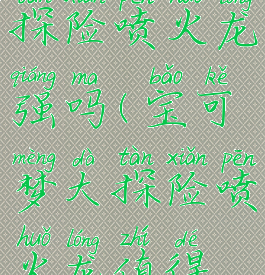 tàn xiǎn pēn huǒ lóng
探险喷火龙
qiáng ma bǎo kě
强吗(宝可
mèng dà tàn xiǎn pēn
梦大探险喷
huǒ lóng zhí dé
火龙值得